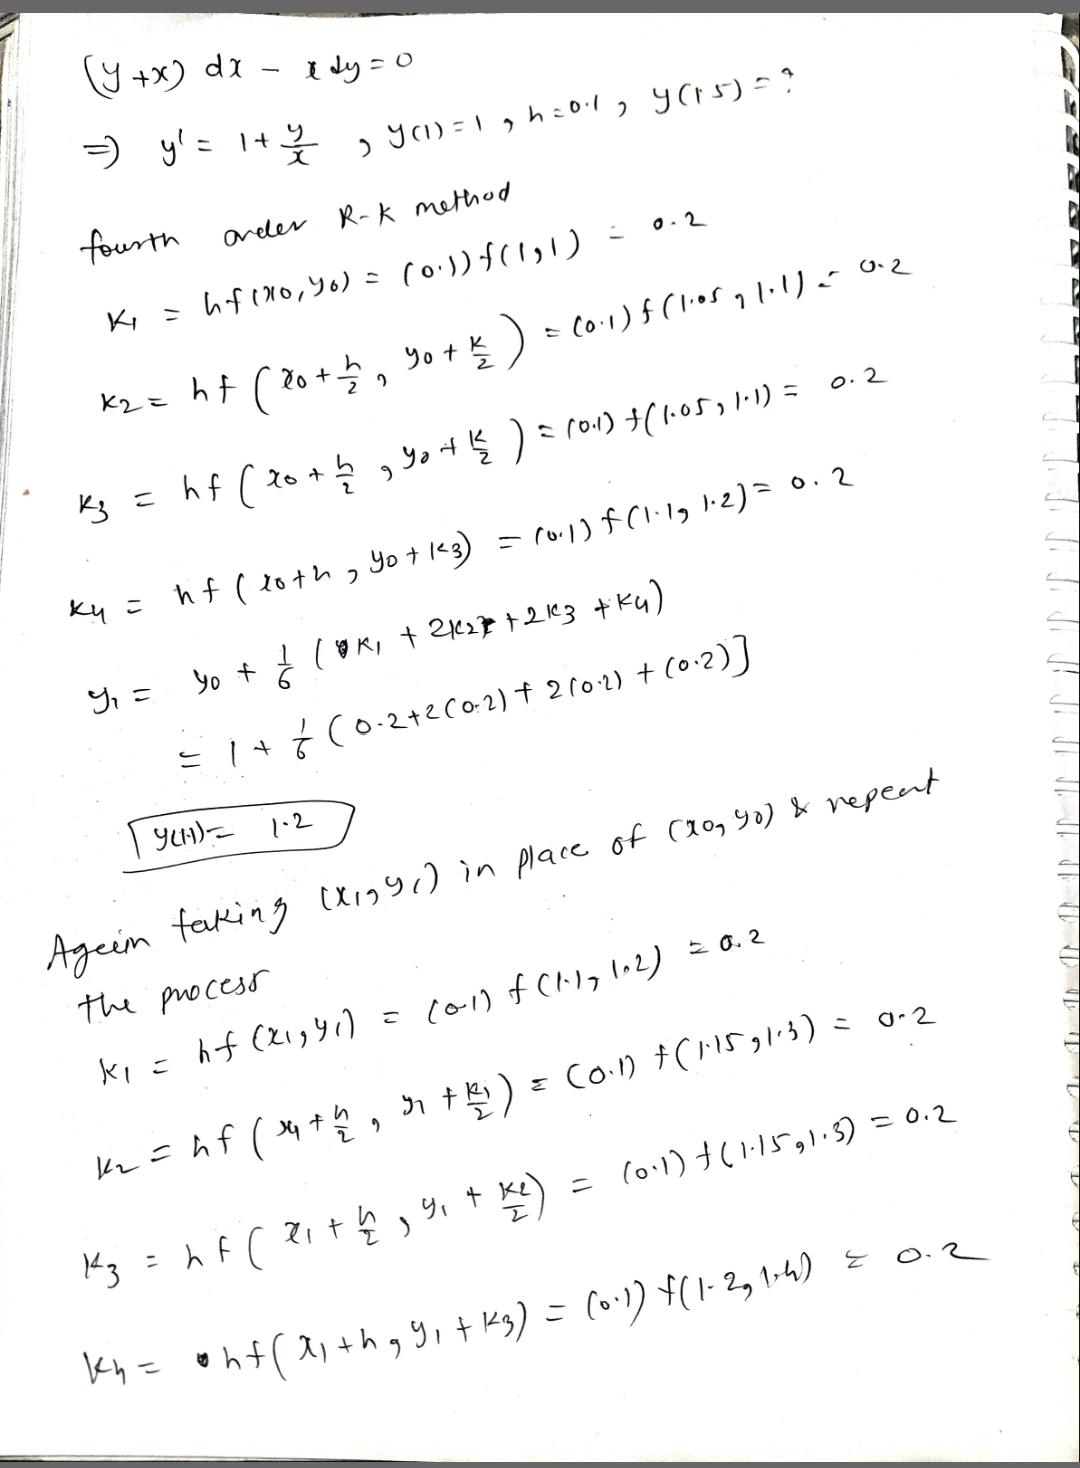 (y+x) dx - x dy = 0
=> y' = 1 + y/x , y(1) = 1 , h = 0.1 , y(1.5) = ?
fourth order R-K method
K1 = hf(x0, y0) = (0.1) f(1,1) = 0.2
K2 = hf(x0 + h/2 , y0 + K/2) = (0.1) f(1.05, 1.1) = 0.2
K3 = hf(x0 + h/2 , y0 + K/2) = (0.1) f(1.05, 1.1) = 0.2
K4 = hf(x0+h, y0+K3) = (0.1) f(1.1, 1.2) = 0.2
y1 = y0 + 1/6 (K1 + 2K2 + 2K3 + K4)
= 1 + 1/6 (0.2+2(0.2) + 2(0.2) + (0.2)]
y(1.1) = 1.2
Ageein taking (x1, y1) in place of (x0, y0) & repeat
the process
K1 = hf(x1, y1) = (0.1) f(1.1, 1.2) = 0.2
K2 = hf(x1 + h/2 , y1 + K1/2) = (0.1) f(1.15, 1.3) = 0.2
K3 = hf(x1 + h/2 , y1 + K2/2) = (0.1) f(1.15, 1.3) = 0.2
K4 = hf(x1 + h, y1 + K3) = (0.1) f(1.2, 1.4) = 0.2